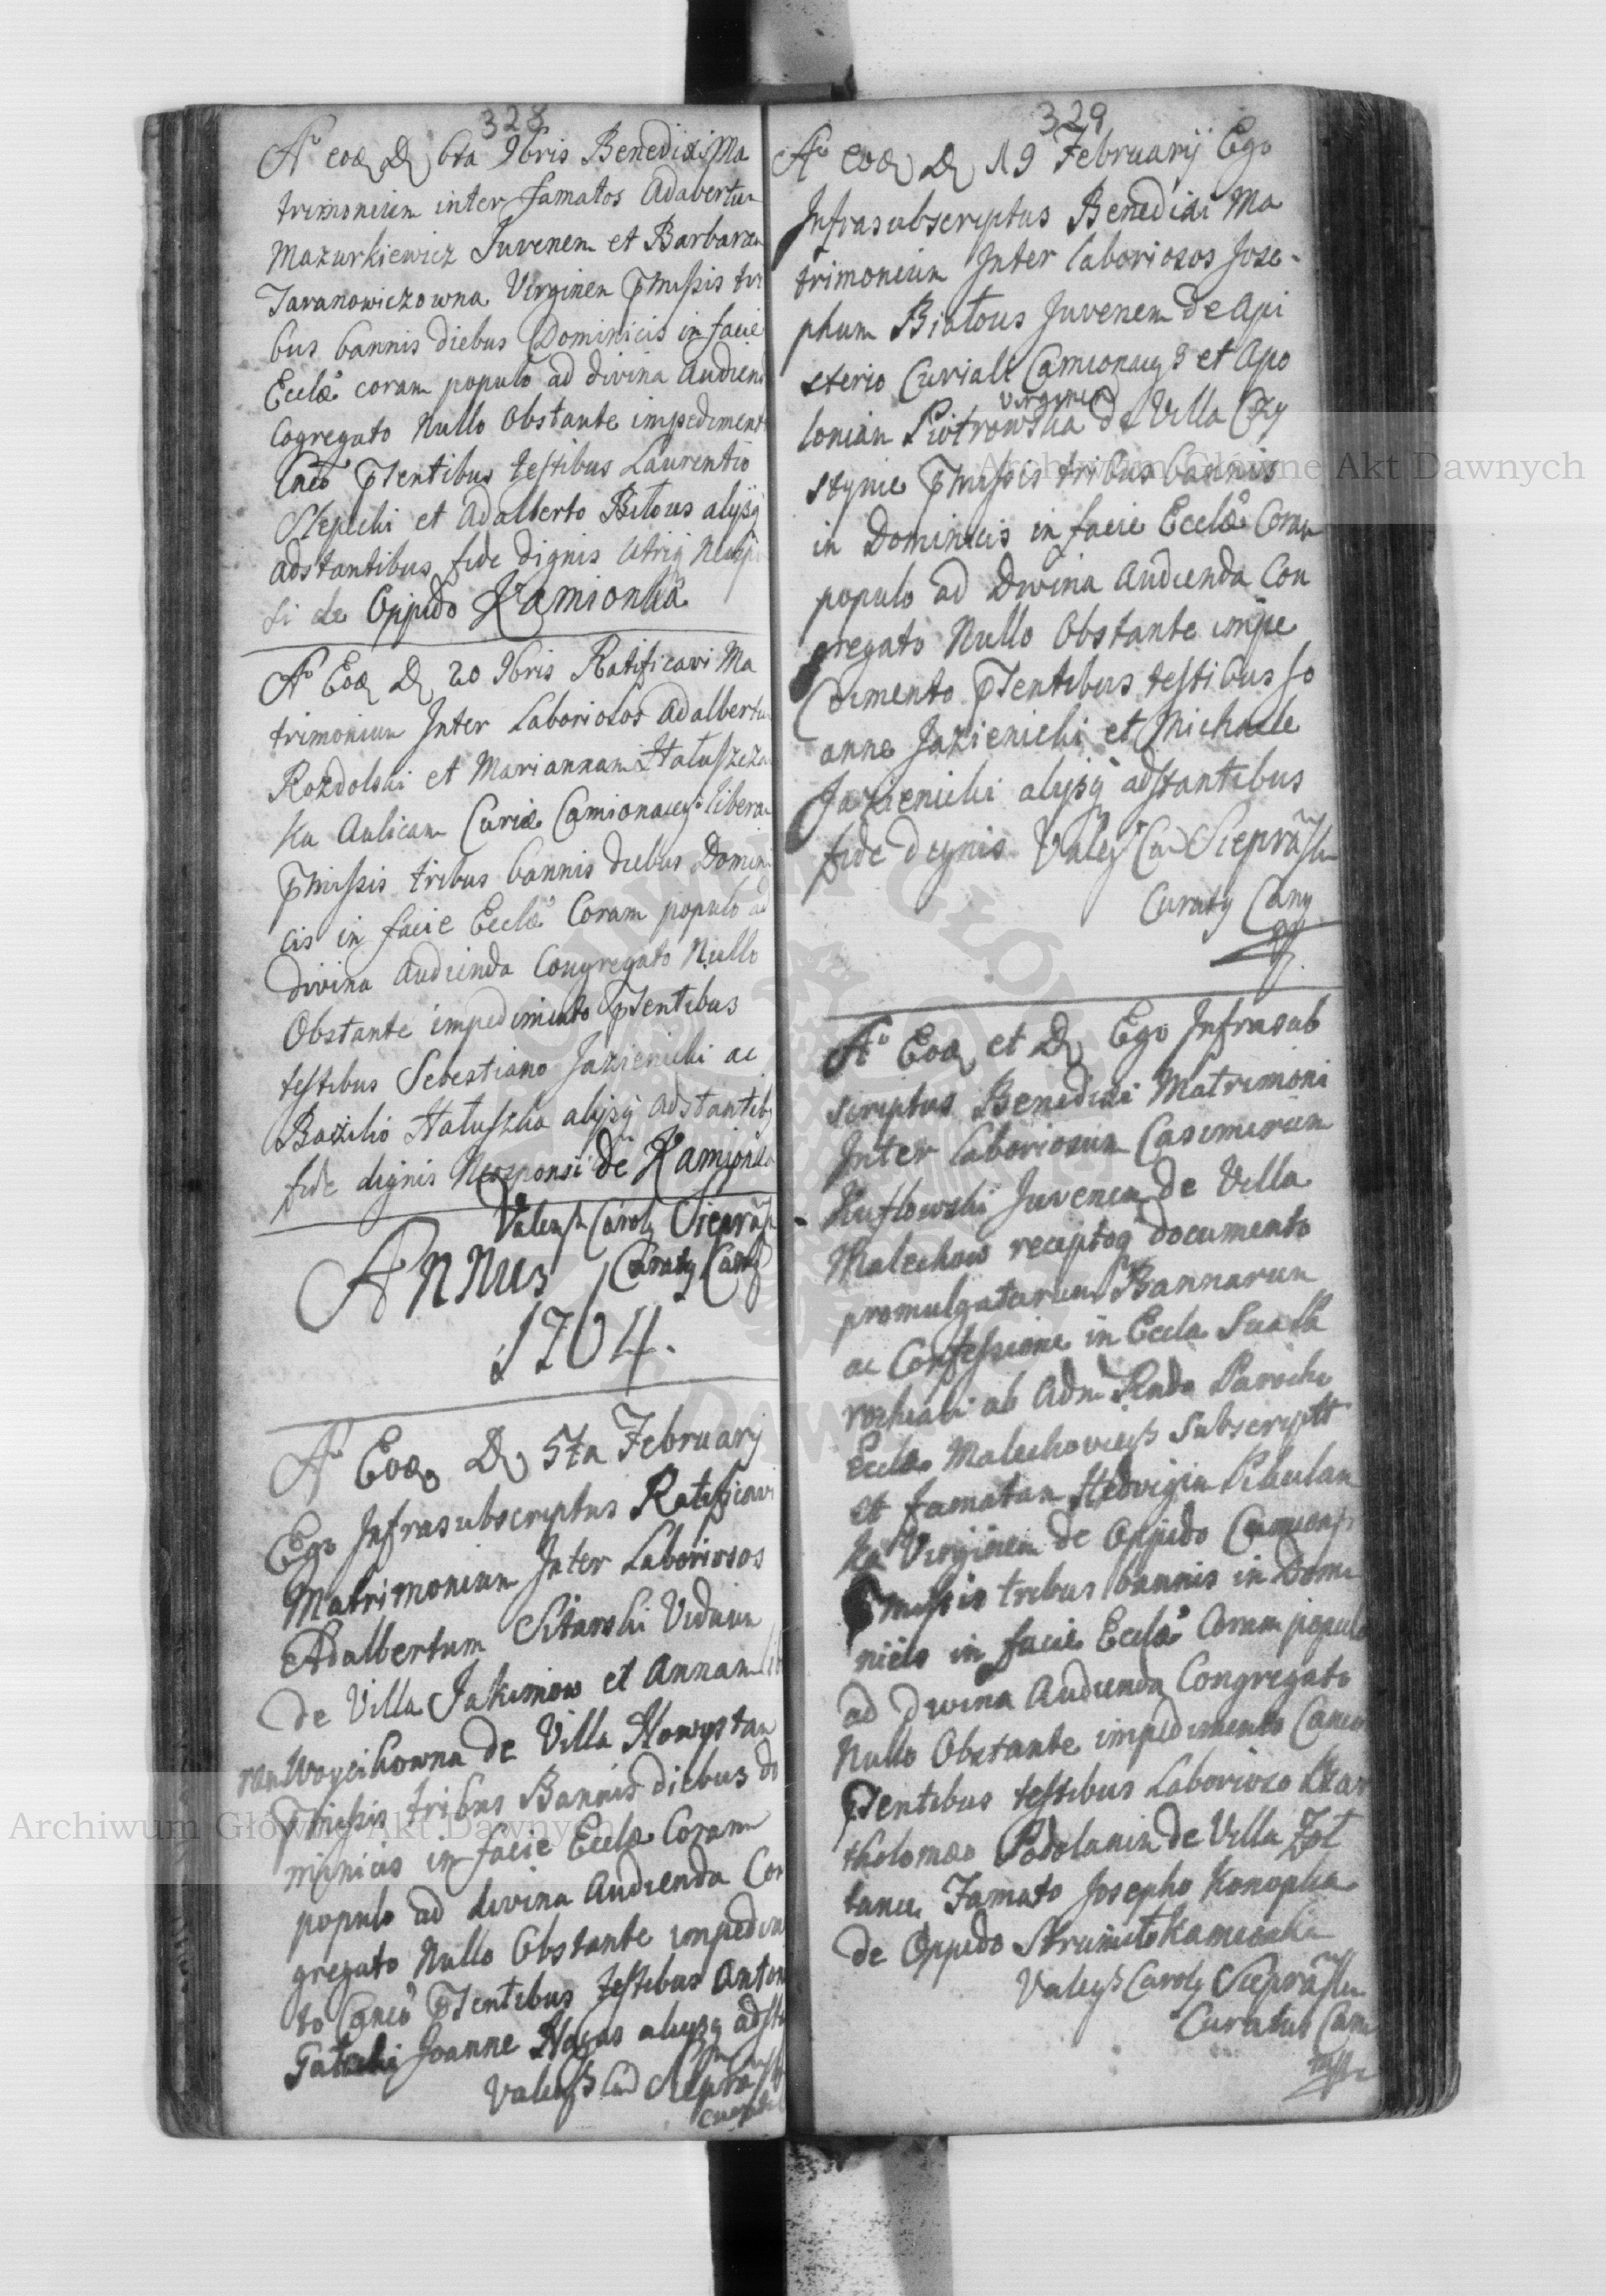 328
Ao eod D 6ta 9bris Benedixi Ma
trimonium inter famatos Adavertum
Mazurkiewicz Juvenem et Barbaram
Taranowiczowna Virginem pmissis tri
bus bannis diebus Dominicis in facie
Ecclæ coram populo ad divina Audiend
Cogregato Nullo Obstante impediment
Cnco pntentibus testibus Laurentio
Slepicki et Adalberto Bitous alijsq
adstantibus fide dignis Utriq
si de Oppido Kamionka
Ao Eod D 20 9bris Ratificavi Ma
trimonium Inter Laboriosos Adalbertum
Rozdolski et Mariannam Hałuszcza
ka Aulicam Curiæ Camionacens liberam
pmissis tribus bannis diebus Domini
cis in facie Ecclæ Coram populo ad
divina Audienda Congregato Nullo
Obstante impedimento pntentibus
testibus Sebestiano Jazienicki ac
Bazilio Hałuszka alijsq adstantibq
fide dignis Neosponsi de Kamionka
Valens Caroly Sieprask
Annus Curatq Cam
1704.
Ao Eod D 5ta February
Ego Infrasubscriptus Ratificavi
Matrimonium Inter Laboriosos
Adalbertum Sitarski Viduum
de Villa Jakimow et Annam lib
ram Woycikowna de Villa Nowystaw
pmissis tribus Bannis diebus Do
minicis in facie Ecclæ Coram
populo ad divina Audienda Con
gregato Nullo Obstante impedimen
to Canco pntentibus testibus Anton
Joanne Hogas alijsq adsta
Valens Car Siepra
329
Ao eod D 19 Februarij Ego
Infrasubscriptus Benedixi Ma
trimonium Inter laboriosos Jose-
phum Białous Juvenem de Api
sterio Curiali Camionacys et Apo
Virginem
lonian Piotrowska de Villa Czy
stynie pmissis tribus bannis
in Dominicis in facie Ecclæ Coram
populo ad Divina Audienda Con
gregato Nullo Obstante impe
dimento pntentibus testibus Jo
anne Jazienicki et Michaele
Jazienicki alijsq adstantibus
fide dignis Valens Car Sieprask
Curatq Camq
Ao Eod et D Ego Infrasub
scriptus Benedixi Matrimoni
Inter laboriosum Casimirum
Kutlowski Juvenem de Villa
Malechow receptoq documento
promulgatarum Bannarum
ac Confessione in Eccla Sua Pa
rochiali ab Adm Rndo Parocho
Ecclæ Malechoviens Subscriptt
et famatam Hedvigim Pikulan
ka Virginem de Oppido Camionsi
pmissis tribus bannis in Domi
nicis in facie Ecclæ Coram populo
ad Divina Audienda Congregato
Nullo Obstante impedimento Canco
pntentibus testibus Laborioso Bar
tholomæo Podolanin de Villa Żoł
tance Famato Josepho Konopka
de Oppido Strumiło Kamionka
Valens Caroly Sieprask
Curatus Cam
mpp
Archiwum Główne Akt Dawnych
Archiwum Główne Akt Dawnych